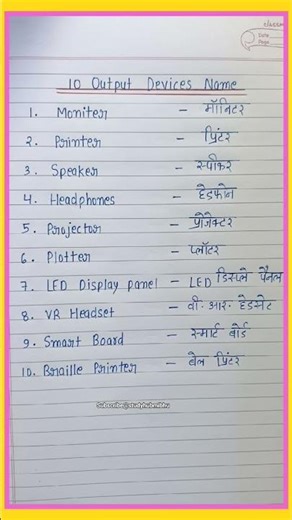 Date
Page
10 Output Devices Name
1. Moniter - मॉनिटर
2. Printer - प्रिंटर
3. Speaker - स्पीकर
4. Headphones - हेडफोन
5. Projector - प्रोजेक्टर
6. Plotter - प्लॉटर
7. LED Display panel - LED डिस्प्ले पैनल
8. VR Headset - वी.आर. हेडसेट
9. Smart Board - स्मार्ट बोर्ड
10. Braille Printer - बेल प्रिंटर